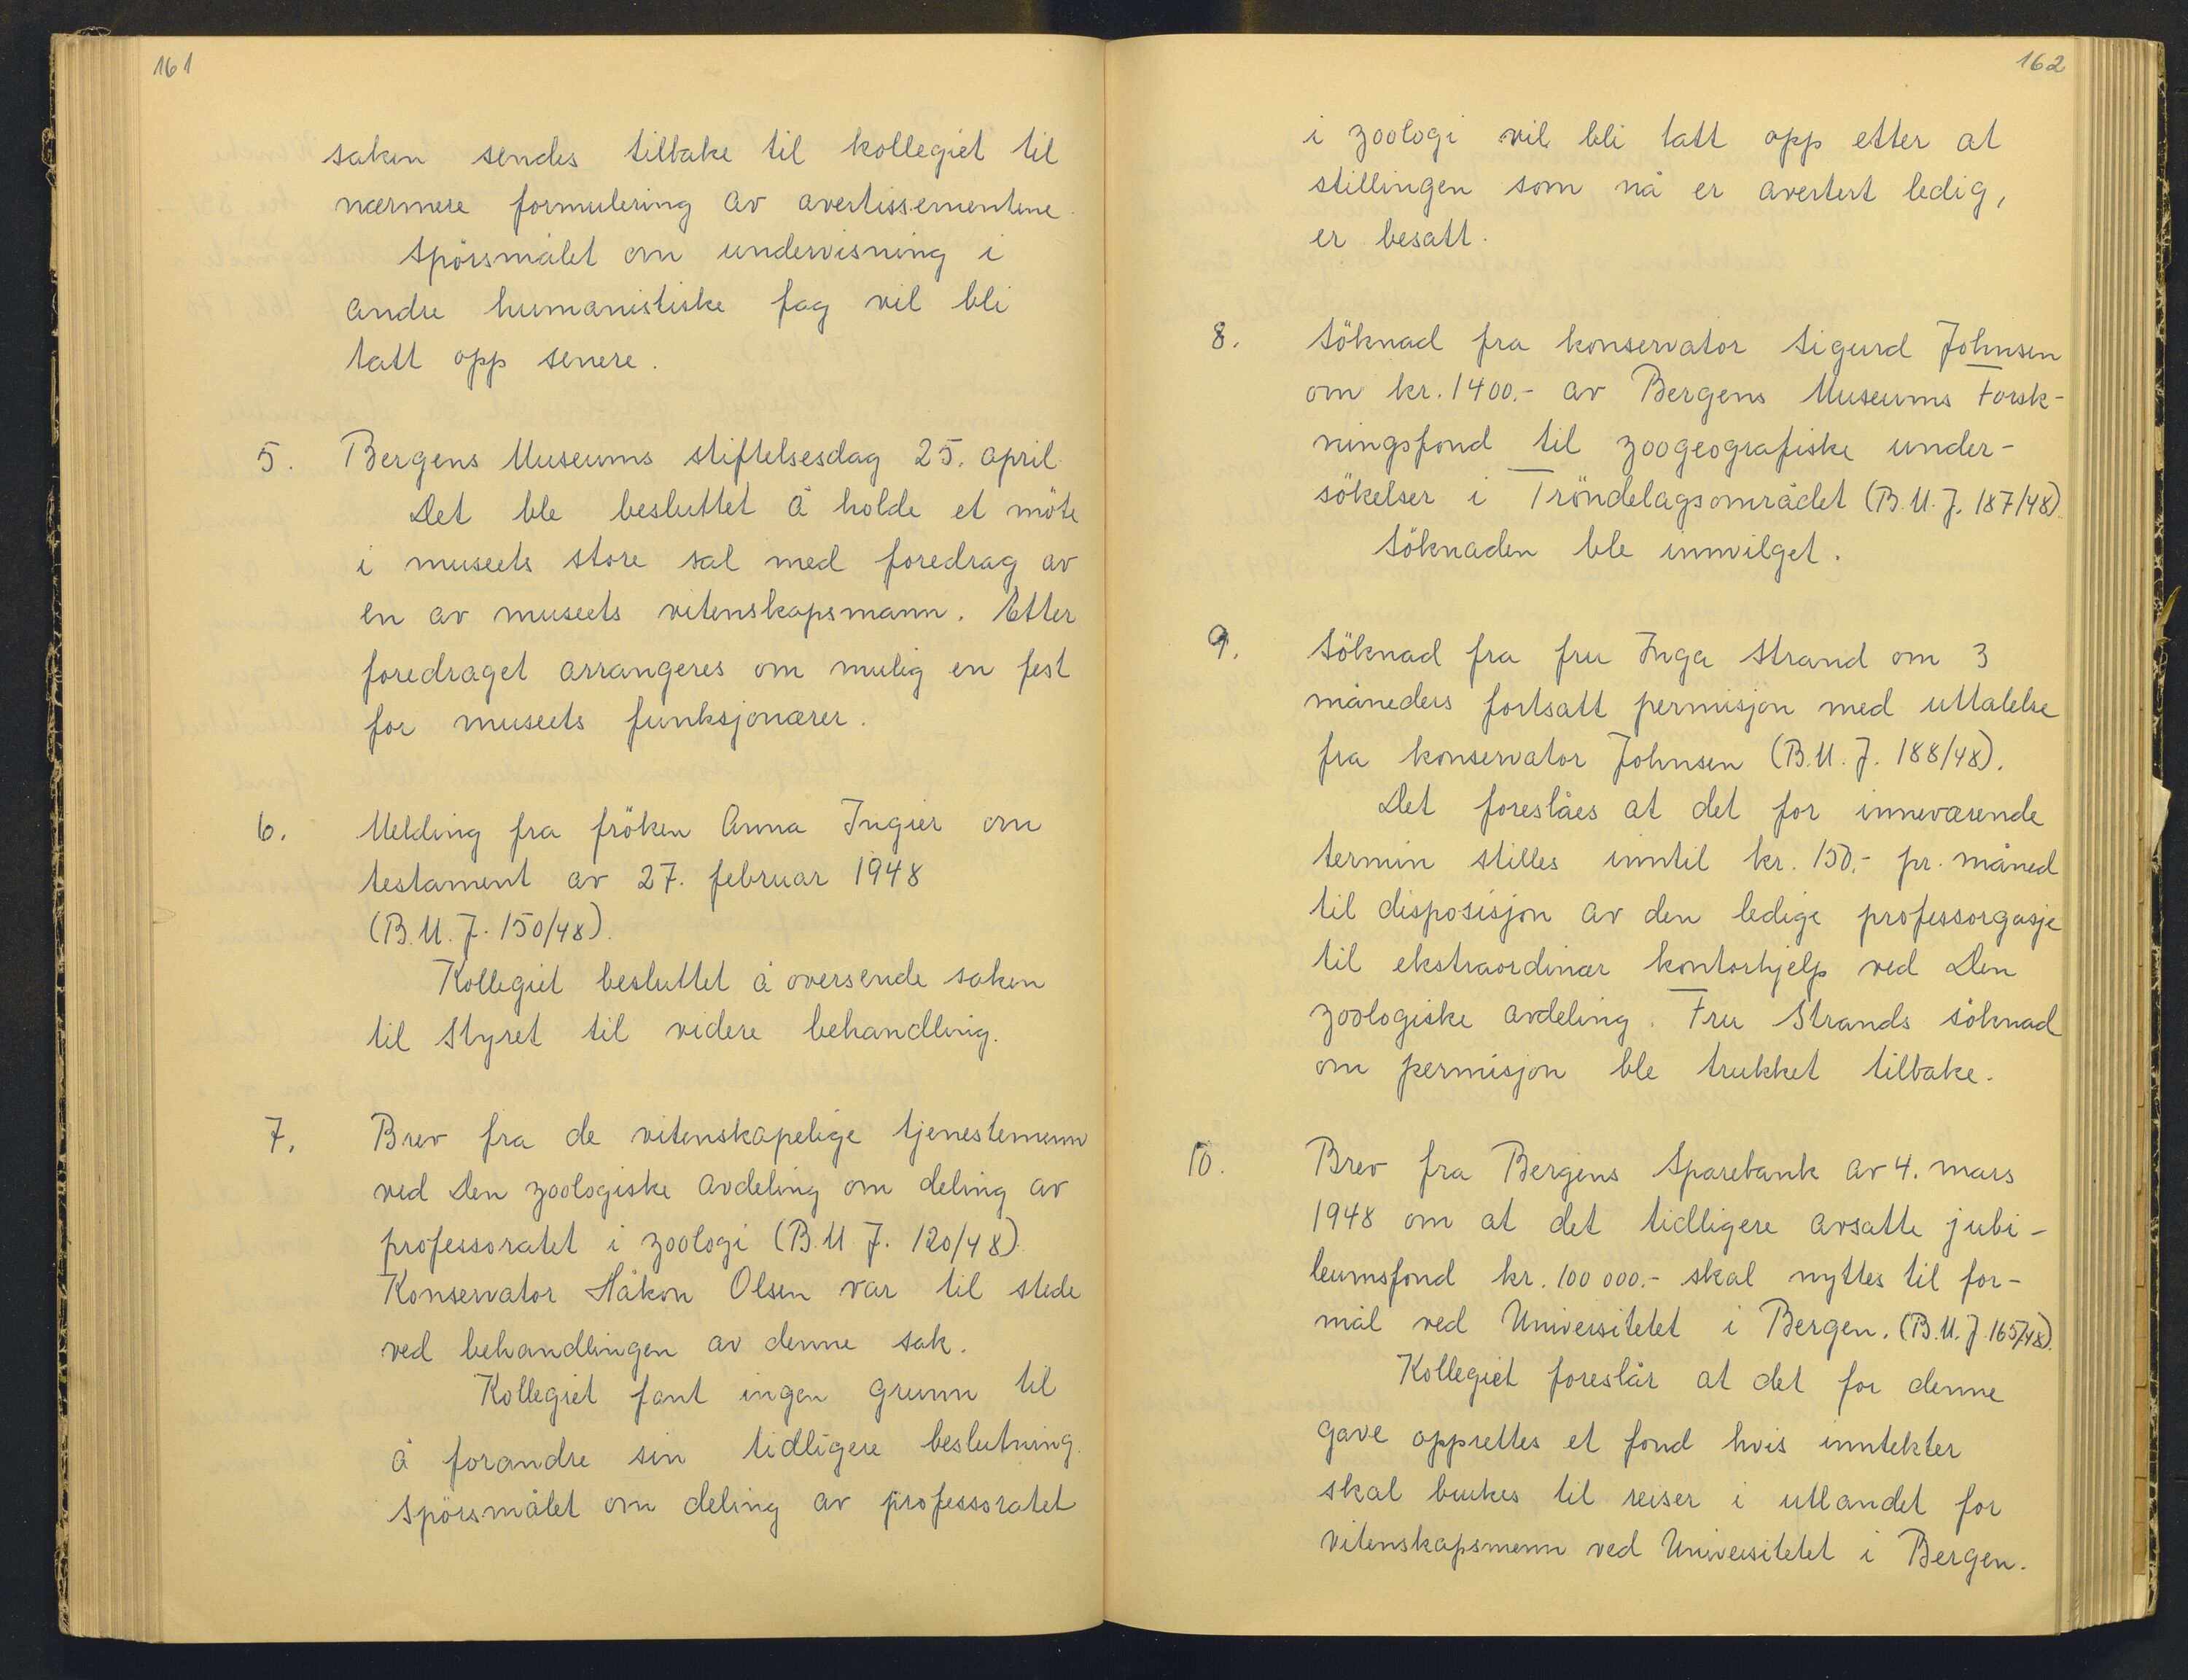 161
saken sendes tilbake til kollegiet til
nærmere formulering av avertissementene.
Spörsmålet om undervisning i
andre humanistiske fag vil bli
tatt opp senere.
5. Bergens Museums stiftelsesdag 25. april.
Det ble besluttet å holde et möte
i museets store sal med foredrag av
en av museets vitenskapsmann. Etter
foredraget arrangeres om mulig en fest
for museets funksjonærer.
6. Melding fra fröken Anna Ingier om
testament av 27. februar 1948
(B.M.J. 150/48).
Kollegiet besluttet å oversende saken
til Styret til videre behandling.
7. Brev fra de vitenskapelige tjenestemenn
ved Den zoologiske avdeling om deling av
professoratet i zoologi (B.M.J. 120/48).
Konservator Håkon Olsen var til stede
ved behandlingen av denne sak.
Kollegiet fant ingen grunn til
å forandre sin tidligere beslutning.
Spörsmålet om deling av professoratet
162
i zoologi vil bli tatt opp etter at
stillingen som nå er avertert ledig,
er besatt.
8. Söknad fra konservator Sigurd Johnsen
om kr. 1400.- av Bergens Museums Forsk-
ningsfond til zoogeografiske under-
sökelser i Tröndelagsområdet (B.M.J. 187/48).
Söknaden ble innvilget.
9. Söknad fra fru Inga Strand om 3
måneders fortsatt permisjon med uttalelse
fra konservator Johnsen (B.M.J. 188/48).
Det foreslåes at det for inneværende
termin stilles inntil kr. 150.- pr. måned
til disposisjon av den ledige professorgasje
til ekstraordinær kontorhjelp ved Den
zoologiske avdeling. Fru Strands söknad
om permisjon ble trukket tilbake.
10. Brev fra Bergens Sparebank av 4. mars
1948 om at det tidligere avsatte jubi-
leumsfond kr. 100 000.- skal nyttes til for-
mål ved Universitetet i Bergen. (B.M.J. 165/48).
Kollegiet foreslår at det for denne
gave opprettes et fond hvis inntekter
skal brukes til reiser i utlandet for
vitenskapsmenn ved Universitetet i Bergen.